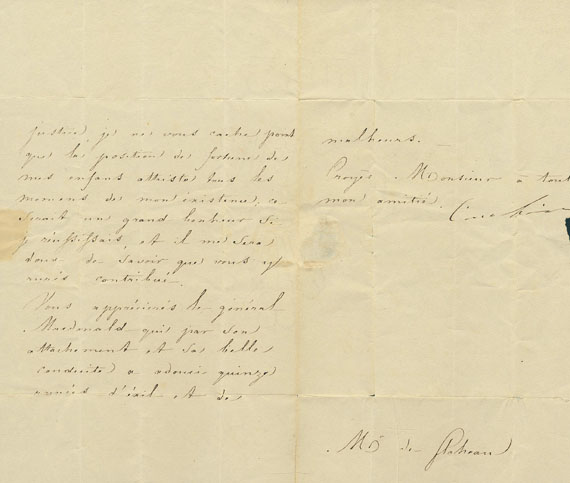 justice, je ne vous cache point
que la position de fortune de
mes enfans attriste tous les
momens de mon existence, ce
serait un grand bonheur si
je réussissais, et il me sera
doux de savoir que vous y
aurés contribué.
Vous apprécierés le général
Macdonald qui par son
attachement et sa belle
conduite a adouci quinze
années d'éxil et de
malheurs.
Croyés Monsieur à toute
mon amitié.
Mr de